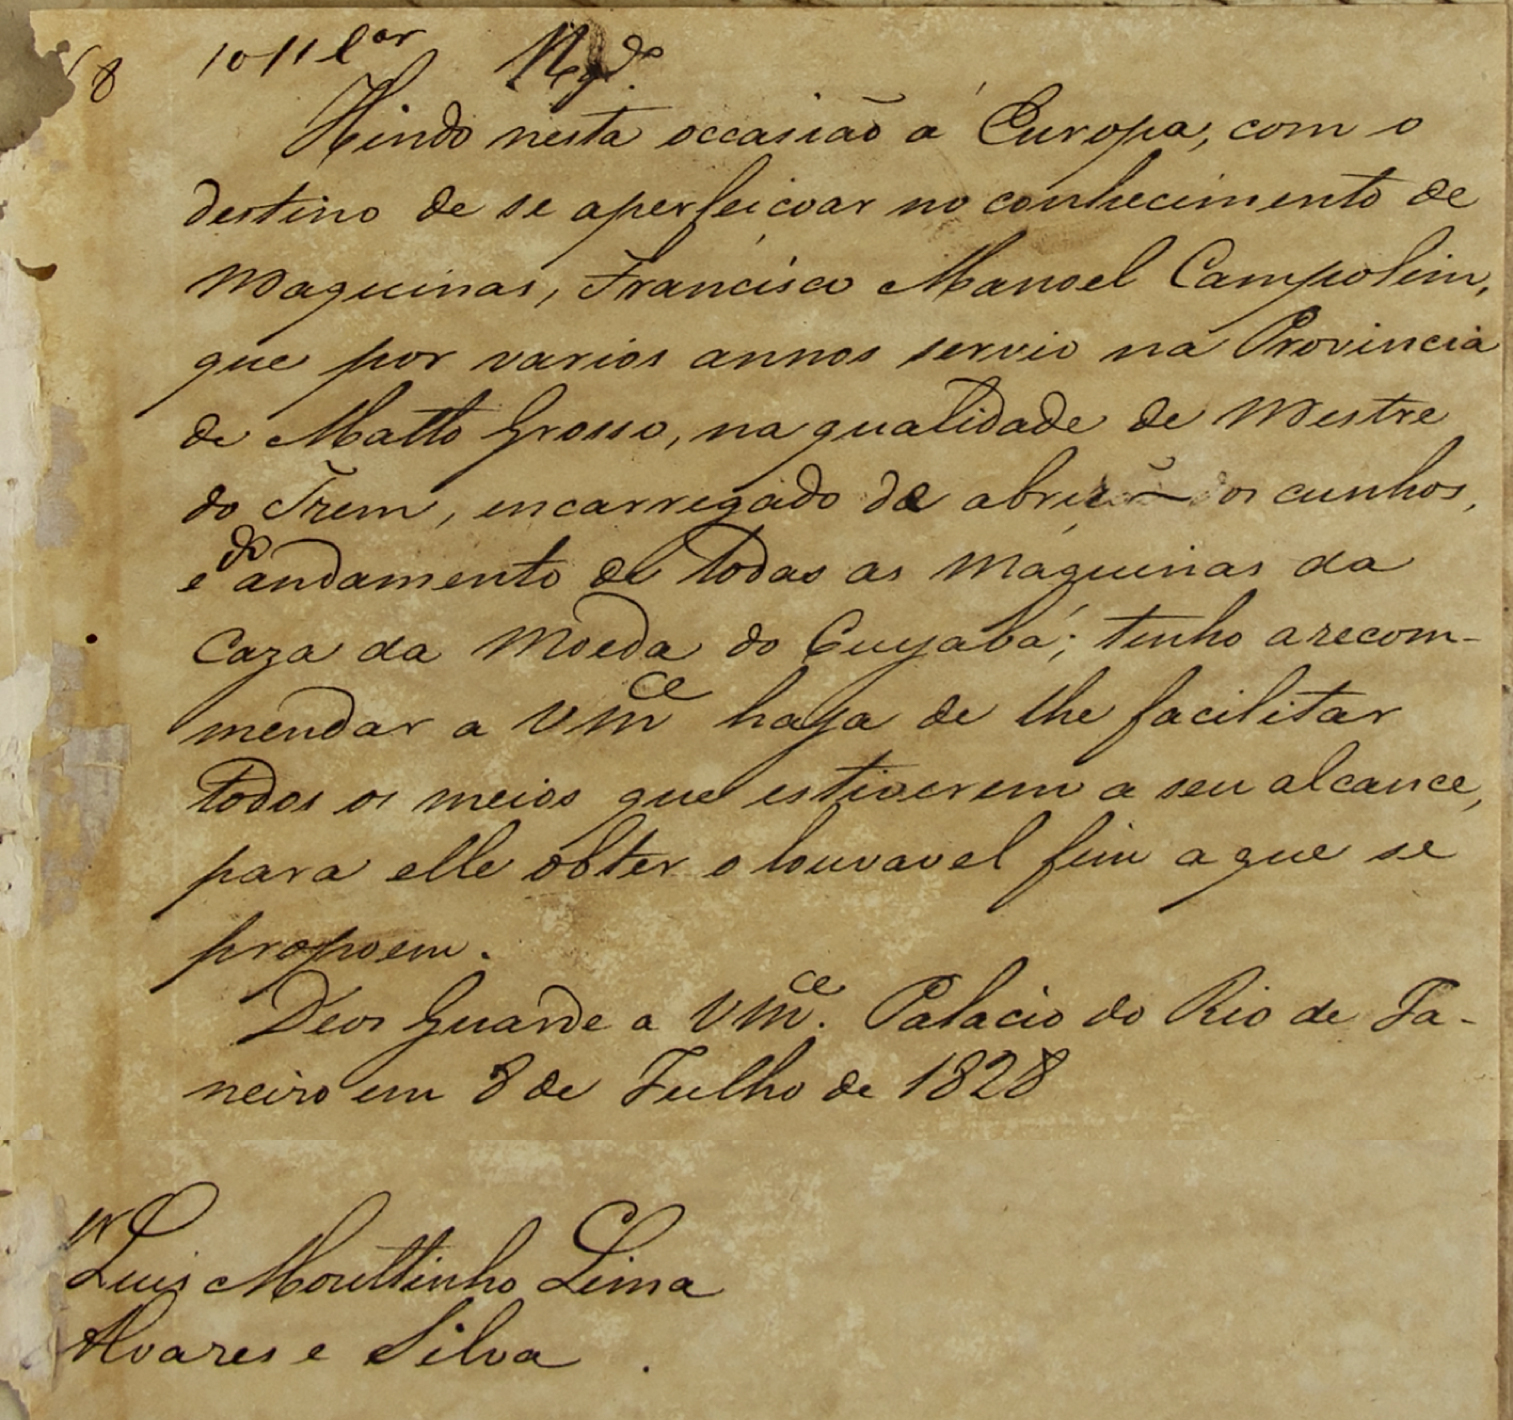 8
Hindo nesta occasião á Europa, com o
destino de se aperfeicoar no conhecimento de
Maquinas, Francisco Manoel Campolim,
que por varios annos servio na Provincia
de Matto Grosso, na qualidade de Mestre
do Trem, encarregado de abrir os cunhos,
e do andamento de todas as Maquinas da
Caza da Moeda do Cuyabá; tenho a recom-
mendar a Vmce haja de lhe facilitar
todos os meios que estiverem a seu alcance,
para elle obter o louvavel fim a que se
propoem.
Deos Guarde a Vmce. Palacio do Rio de Ja-
neiro em 8 de Julho de 1828
Luis Mouttinho Lima
Alvares e Silva